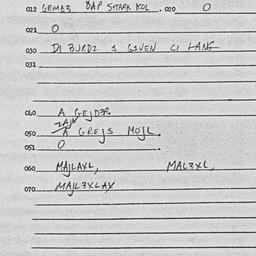 012 GEMB3 BAP SMARK KOL . 020 O
021 O
030 DI BURDZ 1 GIVEN CI LANG
031
040 A GEJD3R
ZAJN
050 A GREJS MOJL
051 O .
060 MAJLAXL, MAL3XL,
070 MAJL3XLAX